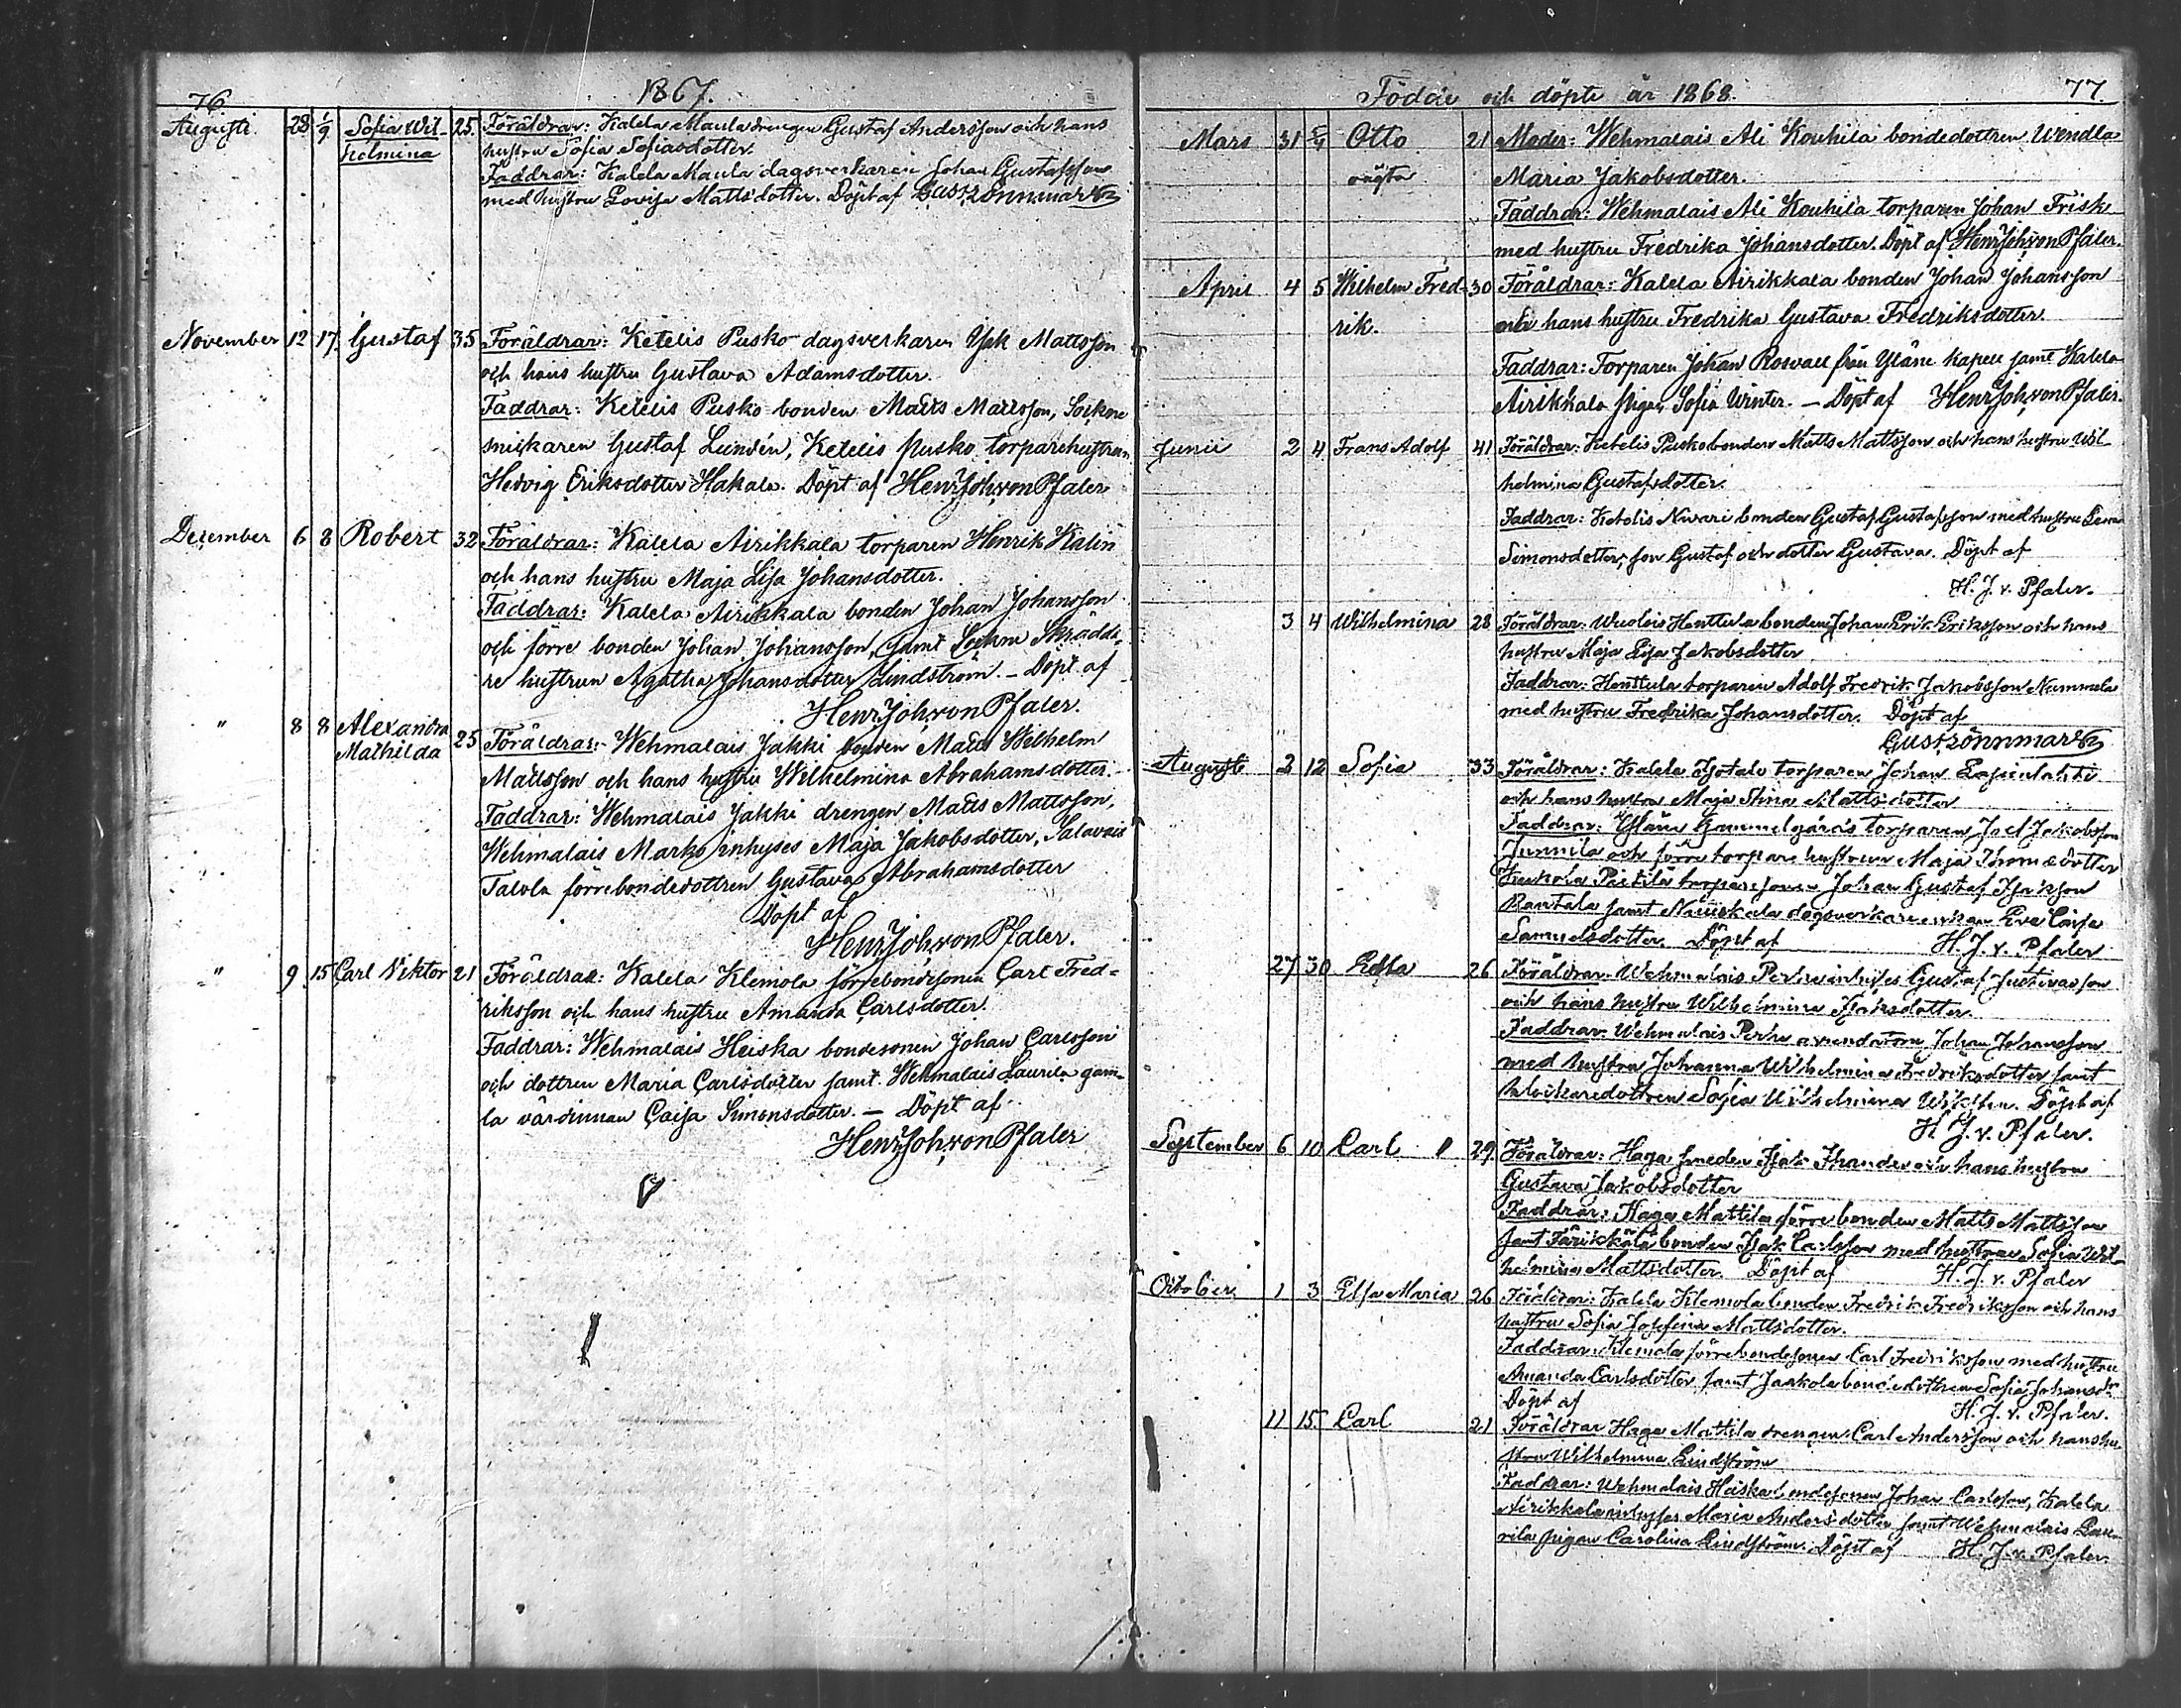 76.
1867.
Augusti 28 1/9 Sofia Wil- 25. Föräldrar: Kalela Maula drengen Gustaf Andersson och hans
helmina hustru Sofia Sofiasdotter.
Faddrar: Kalela Maula dagsverkaren Johan Gustafsson
med hustru Lovisa Mattsdotter. Döpt af Gust. Rönnmark
November 12 17 Gustaf 35 Föräldrar: Ketelis Pusko dagsverkaren Isak Mattsson
och hans hustru Gustava Adamsdotter.
Faddrar: Ketelis Pusko bonden Matts Mattsson, Sockne
snickaren Gustaf Lundén, Ketelis Pusko torparehustrun
Hedvig Eriksdotter Hakala. Döpt af Henr. Joh. von Pfaler
December 6 8 Robert 32 Föräldrar: Kalela Airikkala torparen Henrik Kalin
och hans hustru Maja Lisa Johansdotter.
Faddrar: Kalela Airikkala bonden Johan Johansson
och förre bonden Johan Johansson, samt Sockne Skrädda-
re hustrun Agatha Johansdotter Lindström. – Döpt af
Henr. Joh. von Pfaler.
" 8 8 Alexandra
Mathilda 25 Föräldrar: Wehmalais Jakki bonden Matts Wilhelm
Mattsson och hans hustru Wilhelmina Abrahamsdotter.
Faddrar: Wehmalais Jakki drengen Matts Mattsson,
Wehmalais Marko inhyses Maja Jakobsdotter,
Talola förrebondedottren Gustava Abrahamsdotter
Döpt af
Henr. Joh. von Pfaler.
" 9 15 Carl Viktor 21 Föräldrar: Kalela Klemola förrebondesonen Carl Fred-
riksson och hans hustru Amanda Carlsdotter.
Faddrar: Wehmalais Heiska bondesonen Johan Carlsson
och dottren Maria Carlsdotter samt Wehmalais Laurila gam-
la värdinnan Caisa Simonsdotter. – Döpt af
Henr. Joh. von Pfaler
Födde och döpte år 1868. 77.
Mars 31 5/4 Otto 21 Moder: Wehmalais Ali Kouhila bondedottren Wendla
oägta Maria Jakobsdotter.
Faddrar: Wehmalais Ali Kouhila torparen Johan Frisk
med hustru Fredrika Johansdotter. Döpt af Henr. Joh. von Pfaler.
April 4 5 Wilhelm Fred- 30 Föräldrar: Kalela Airikkala bonden Johan Johansson
rik. och hans hustru Fredrika Gustava Fredriksdotter.
Faddrar: Torparen Johan Rosvall från Yläne kapell samt Kalela
Airikkala pigan Sofia Winter. – Döpt af Henr. Joh. von Pfaler.
Junii 2 4 Frans Adolf 41 Föräldrar: Ketelis Pusko bonden Matts Mattsson och hans hustru Wil-
helmina Gustafsdotter.
Faddrar: Ketelis Nivari bonden Gustaf Gustafsson med hustru Lena
Simonsdotter, son Gustaf och dotter Gustava. Döpt af
H. J. v. Pfaler.
3 4 Wilhelmina 28 Föräldrar: bonden Johan Erik Eriksson och hans
hustru Maja Lisa Jakobsdotter
Faddrar: Henttula torparen Adolf Fredrik Jakobsson Nummela
med hustru Fredrika Johansdotter. Döpt af
Gust. Rönnmark
Augusti 2 12 Sofia 33 Föräldrar: Kalela torparen Johan
och hans hustru Maja Stina Mattsdotter
Faddrar: Yläne Gammelgårds torparen Joel Jakobsson
Junnila och förre torpare hustrun Maja
torparesonen Johan Gustaf Isaksson
Rantala samt dagsverkarenkan Eva Caisa
Samuelsdotter. Döpt af H. J. v. Pfaler
27 30 26 Föräldrar: Wehmalais Perhe inhyses Gustaf
och hans hustru Wilhelmina Isaksdotter.
Faddrar: Wehmalais Perhe arendatorn Johan Johansson
med hustru Johanna Wilhelmina Fredriksdotter samt
klockaredottren Sofia Wilhelmina Döpt af
H. J. v. Pfaler.
September 6 10 Carl 29. Föräldrar: Haga smeden Isak och hans hustru
Gustava Jakobsdotter
Faddrar: Haga Mattila förre bonden Matts Mattsson
samt bonden Isak Carlsson med hustrun Sofia Wil-
helmina Mattsdotter. Döpt af H. J. v. Pfaler
October 1 3 Elsa Maria 26 Föräldrar: Kalela Klemola bonden Fredrik Fredriksson och hans
hustru Sofia Josefina Mattsdotter.
Faddrar: Klemola förrebondesonen Carl Fredriksson med hustru
Amanda Carlsdotter samt Jaakola bondedottren Sofia Johansdr
Döpt af H. J. v. Pfaler.
11 15 Carl 21 Föräldrar Haga Mattila drengen Carl Andersson och hans hu-
stru Wilhelmina Lindström
Faddrar: Wehmalais Heiska bondesonen Johan Carlsson, Kalela
Airikkala inhyses Maria Andersdotter samt Wehmalais Lau-
rila pigan Carolina Lindström. Döpt af H. J. v. Pfaler.